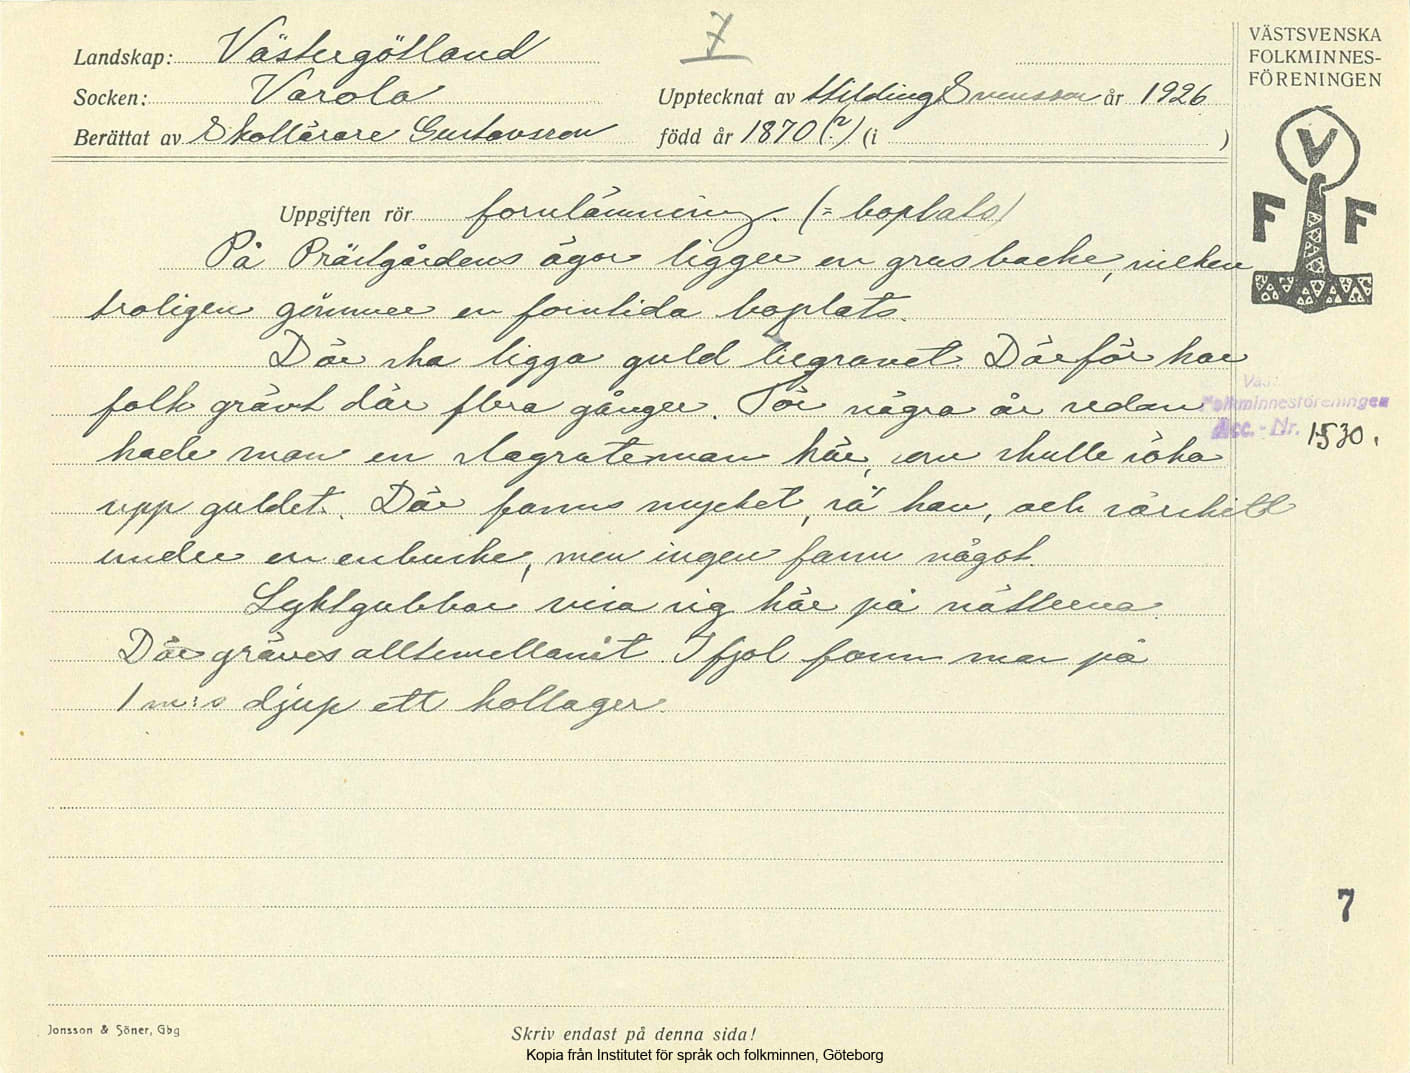 7
Landskap: Västergötland
Socken: Varola
Upptecknat av Hilding Svensson år 1926
Berättat av Skollärare Gustavsson född år 1870(?) (i )
VÄSTSVENSKA
FOLKMINNES-
FÖRENINGEN
V
F F
Uppgiften rör fornlämning. (= boplats)
På Prästgårdens ägor ligger en grusbacke, vilken
troligen gömmer en forntida boplats.
Där ska ligga guld begravet. Därför har
folk grävt där flera gånger. För några år sedan
hade man en slagruteman här, som skulle söka
upp guldet. Där fanns mycket, sa' han, och särskilt
under en enbuske, men ingen fann något.
Lyktgubbar visa sig här på nätterna.
Där gräves alltemellanåt. I fjol fann man på
1 m:s djup ett kollager.
Folkminnesföreningen
Acc.-Nr. 1530.
7
Jonsson & Söner, Gbg
Skriv endast på denna sida!
Kopia från Institutet för språk och folkminnen, Göteborg